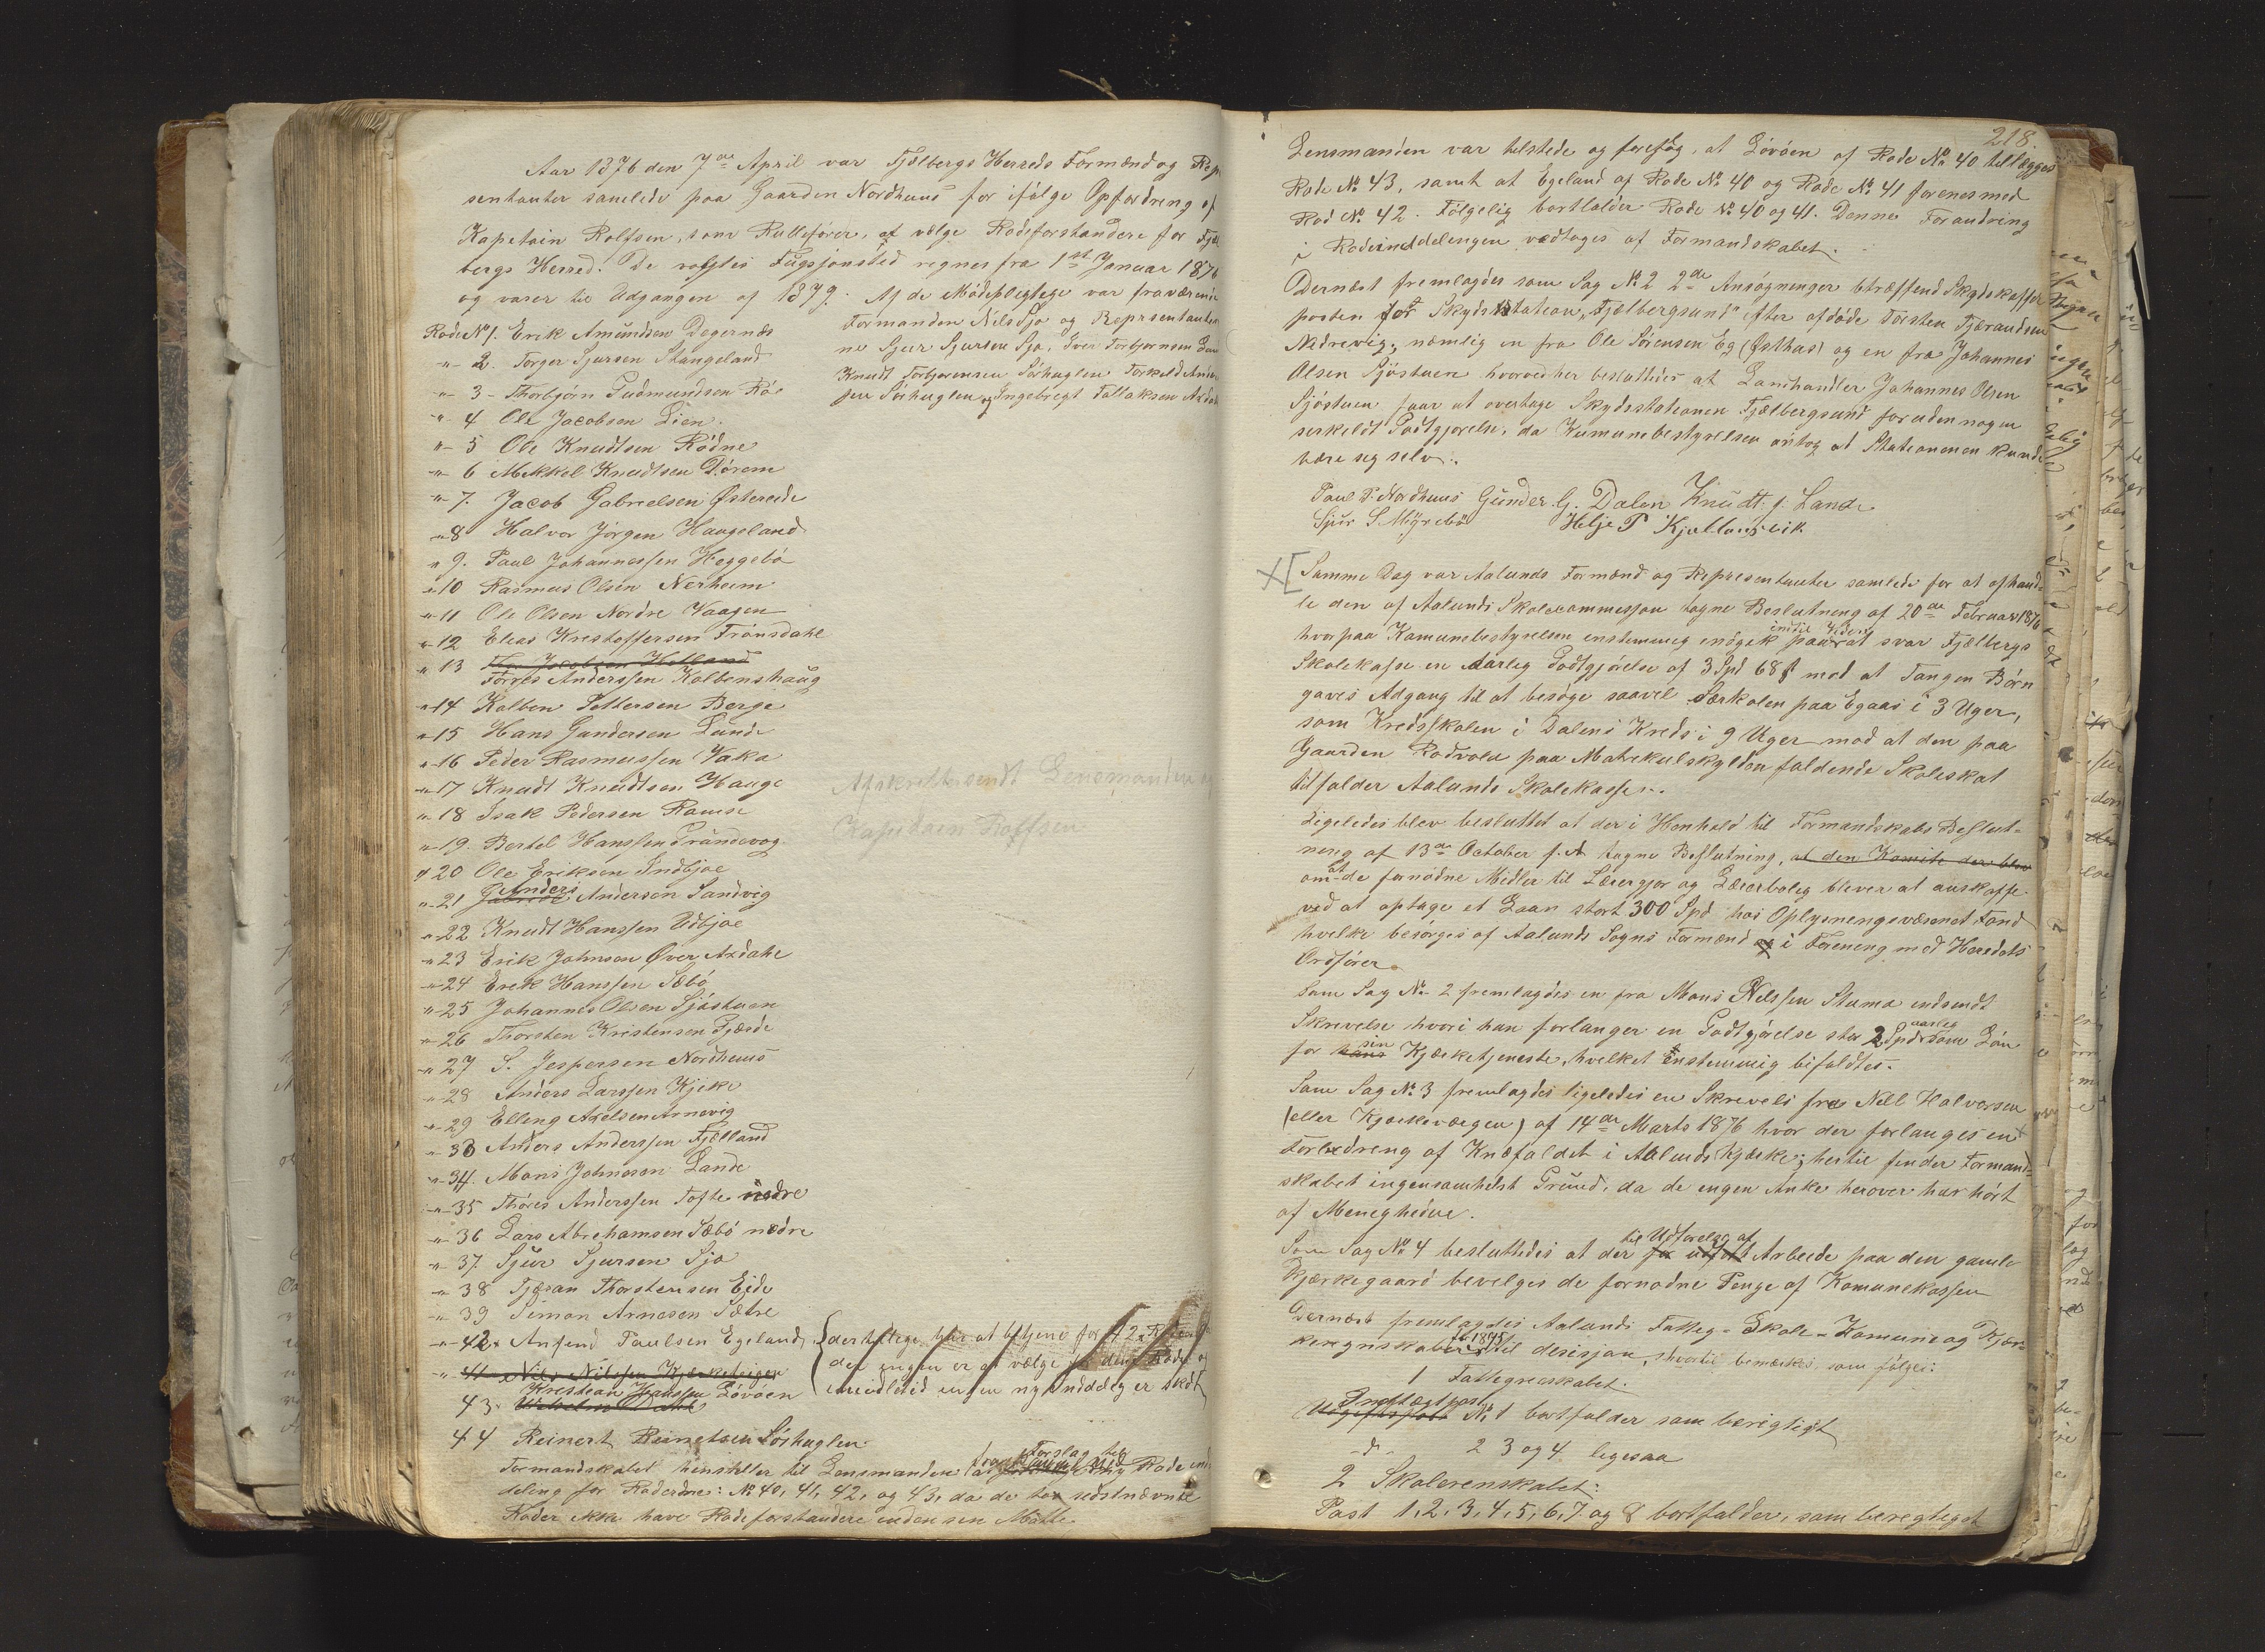 Aar 1876 den 7de April var Fjelbergs Herreds Formænd og Rep
sentanter samlede paa Gaarden Nordhuus for ifølge Opfordring af
Kapetain Rolfsen, som Rullefører, at vælge Rodeforstandere for Fjel
bergs Herred. De valgtes Fugsjonstid regnes fra 1ste Januar 1876
og varer til Udgangen af 1879. Af de Mødepligtige var fraværende
Formanden Nils Sjo og Reprsentanter
ne Sjur Sjursen Sjo, Iver Torbjørnsen
Knudt Torbjørnsen Sørhuglen Torkeld Anders
sen Sørhuglen og Ingebregt Tollaksen Axdal
Rode No 1. Erik Amundsen Degernæs
" 2. Torger Sjursen Stangeland
" 3 Thorbjørn Gudmundsen Rø
" 4 Ole Jacobsen Lien
" 5 Ole Knudtsen Rødne
" 6 Mekkel Knudtsen Dørem
" 7. Jacob Gabrielsen Østereide
" 8 Halvor Jørgen Haugeland
" 9. Paul Johannessen Heggebø
" 10 Rasmus Olsen Nerheim
" 11 Ole Olsen Nordre Vaagen
" 12 Elias Krestoffersen Frønsdahl
" 13 Jacobsen Holland
Torres Anderssen Kolbenshaug
" 14 Kolben Settersen Berge
" 15 Hans Gundersen Lunde
" 16 Peder Rasmussen Vaka
" 17 Knudt Knudtsen Hauge
" 18 Isak Pedersen Ramse
" 19. Bertel Hanssen Grandevog
" 20 Ole Eriksen Indbjoe
" 21 Anders Andersen Sandvig
" 22 Knudt Hanssen Udbjoe
" 23 Erik Johnson Øvre Axdahl
" 24 Erik Hanssen Sæbø
" 25 Johannes Olsen Sjøstuen
" 26 Thorsten Kristensen Gjerde
" 27 S. Jespersen Nordhuus
" 28 Anders Larssen Kjeke
" 29 Elling Axelsen Arnevig
" 33 Anders Anderssen Fjelland
" 34. Mons Johnesen Lande
" 35 Thores Anderssen Tofte nedre
" 36 Lars Abrehamsen Sæbø nedre
" 37. Sjur Sjursen Sjo
" 38 Tjeran Thorstensen Eide
" 39 Simon Arnesen Sætre
" 42. Anfind Paulsen Egeland
" 41 Nils Nilssen
Krestian Hanssen Løvøen
43.
44 Reinert Reinertsen Sørhuglen
der tillige bliver at betjene for 42
der ingen er at vælge
imidlertid ingen ny Inddeling er skedt
Afskrift sendt Lensmanden og
Kapitain Rolfsen
Formandskabet henstiller til Lensmanden Forslag til Rode ind
deling for Roderne: No 40, 41, 42, og 43, da de to sidstnævnte
Roder ikke have Rodeforstandere inden sin Midte
218.
Lensmanden var tilstede og foreslog, at Løvøen af Rode No 40 tillægges
Rode No 43, samt at Egeland af Rode No 40 og Rode No 41 forenes med
Rod No 42. Følgelig bortfalder Rode No 40 og 41. Denne Forandring
i Rodeinddelingen vedtoges af Formandskabet.
Dernæst fremlagdes som Sag No 2 2de Ansøgninger betræffend Skydskaffer
posten for Skydsstation „Fjelbergsund" efter afdøde Torsten Tjerandsen
Nedrevig, nemlig en fra Ole Sørensen Eg (Østhus) og en fra Johannes
Olsen Sjøstuen hvorved her besluttedes at Landhandler Johannes Olsen
Sjøstuen faar at overtage Skydsstationen Fjælbergsund foruden nogen
serskeldt Godtgjørelse, da Kumunebestyrelsen antog at Stationen kunde
bære sig selv.
Paul P. Nordhuus Gunder G. Dalen Knudt J. Lande
Sjur S Myrebø Helje P Kjetlansvik
Samme Dag var Aalunds Formænd og Representanter samlede for at afhand-
le den af Aalunds Skolecommessjon tagne Beslutning af 20de Februar 1876
hvorpaa Komunebestyrelsen enstemmig indgik paa indtil Videre at svar Fjelbergs
Skolekasse en Aarlig Godtgjørelse af 3 Spd 68 ß mod at Tangen Børn
gaves Adgang til at besøge saavel Skolen paa Egaas i 3 Uger,
som Kredsskolen i Dalens Kreds i 9 Uger mod at den paa
Gaarden Rodvola paa Matrikulskylden faldende Skoleskat
tilfalder Aalunds Skolekasse.
Ligeledes blev besluttet at der i Henhold til Formandskabs Beslut-
ning af 13de October f. A tagne Beslutning, at den Komite der blev
om at de fornødne Midler til Lærerjor og Lærerbolig bliver at anskaffe
ved at optage et Laan stort 300 Spd hos Oplysningsvæsenet Fond
hvilke besørges af Aalunds Sogns Formænd i Forening med Heredets
Ordfører
Som Sag No 2 fremlagdes en fra Mons Nelssen Stuma indsendt
Skrivelse hvori han forlanger en Godtgjørelse stor 2 Spd aarlig som Løn
for sin Kjerketjeneste, hvilket Enstemmig bifaldtes.
Som Sag No 3 fremlagdes ligeledes en Skrivels fra Nell Halvorsen
(eller Kjerkeværgen) af 14de Marts 1876 hvor der forlanges en
Forbedreng af Knefaldet i Aalunds Kjerke; hertil finder Formand-
skabet ingensomhelst Grund, da de ingen Anke herover har hørt
af Menigheden.
Som Sag No 4 besluttedes at der til Udførelse af Arbeide paa den gamle
Kjerkegaard bevelges de fornødne Penge af Komunekassen
Dernæst fremlagdes Aalunds Fatteg- Skole- Komune og Kjer-
keregnskaber for 1875 til desisjon, hvortil bemærkes, som følger:
1 Fattegneskabet.
Indtægtpost No 1 bortfalder som beregtigt
-d- 2 3 og 4 ligesaa
2 Skolerenskabet:
Post 1, 2, 3, 4, 5, 6, 7 og 8 bortfalder, som beregtiget